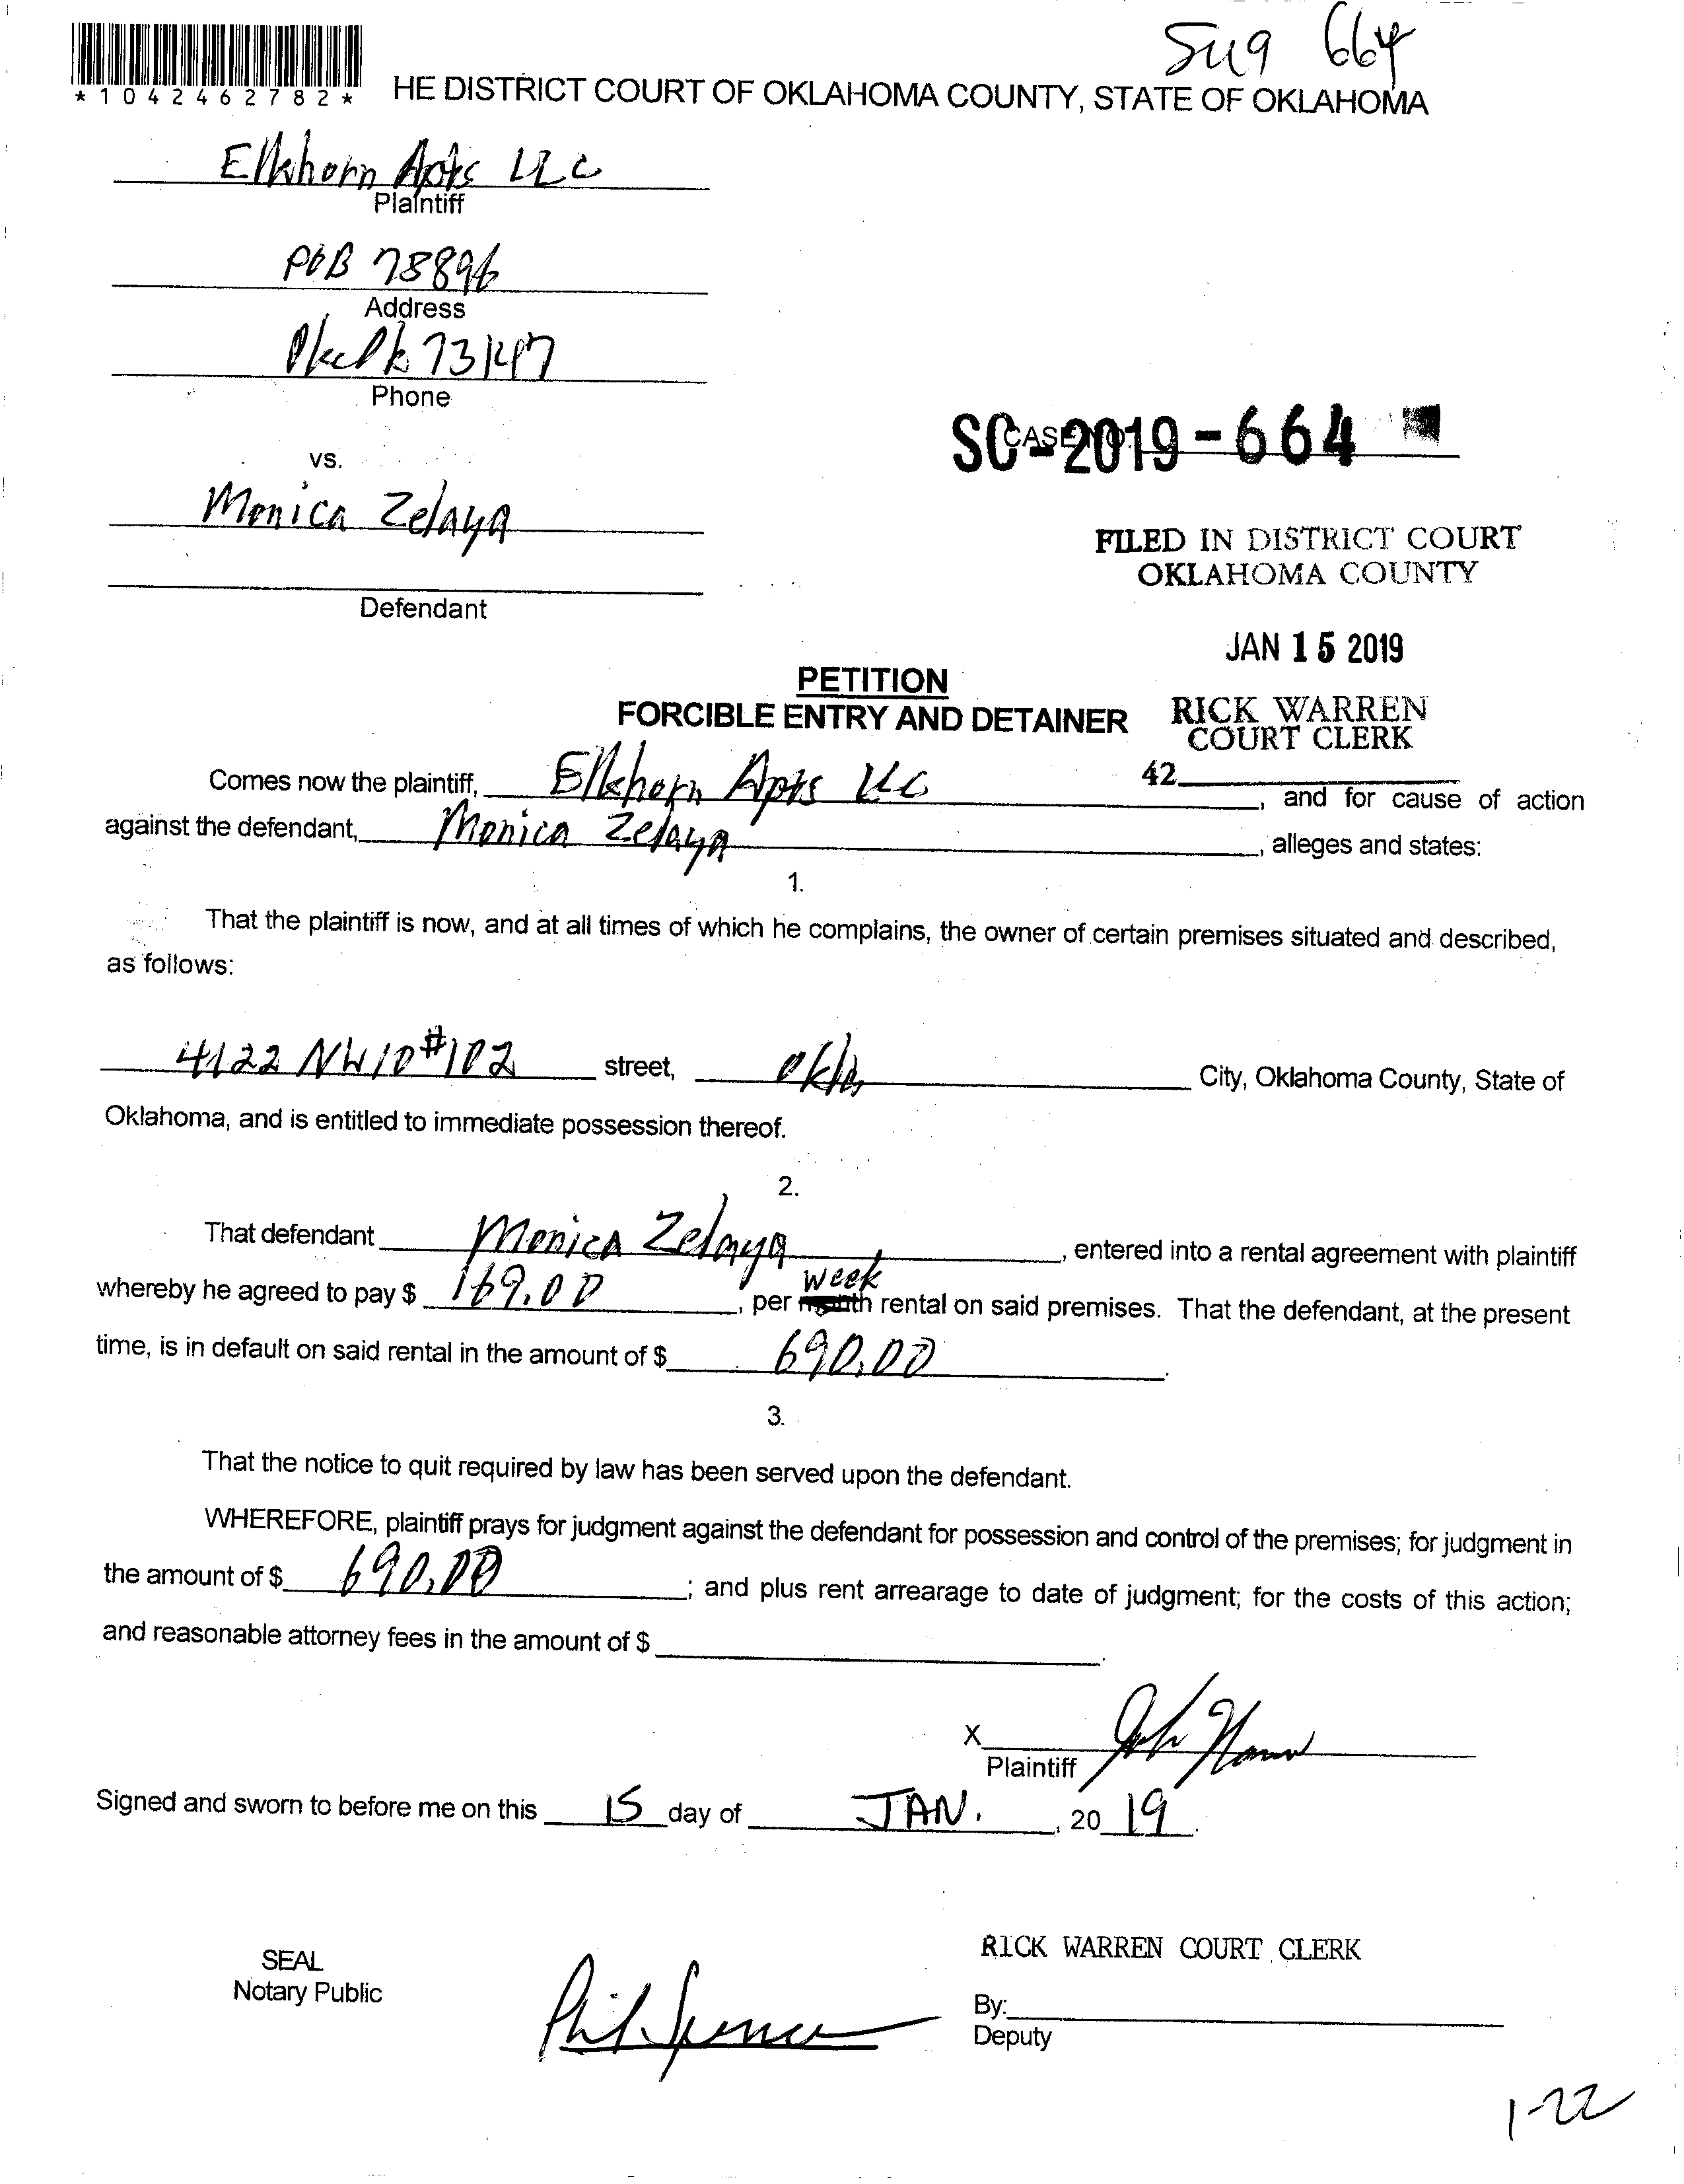 Su9 664
*1042462782*
HE DISTRICT COURT OF OKLAHOMA COUNTY, STATE OF OKLAHOMA
Elkhorn Apts LLC
Plaintiff
POB 78896
Address
Okc Ok 73147
Phone
SC-2019-664
vs.
Monica Zelaya
FILED IN DISTRICT COURT
OKLAHOMA COUNTY
Defendant
JAN 15 2019
PETITION
FORCIBLE ENTRY AND DETAINER
RICK WARREN
COURT CLERK
42
Comes now the plaintiff, Elkhorn Apts LLC, and for cause of action
against the defendant, Monica Zelaya, alleges and states:
1.
That the plaintiff is now, and at all times of which he complains, the owner of certain premises situated and described,
as follows:
4122 NW 10 #102 street, Okla City, Oklahoma County, State of
Oklahoma, and is entitled to immediate possession thereof.
2.
That defendant Monica Zelaya, entered into a rental agreement with plaintiff
week
whereby he agreed to pay $ 169.00, per month rental on said premises. That the defendant, at the present
time, is in default on said rental in the amount of $ 690.00.
3.
That the notice to quit required by law has been served upon the defendant.
WHEREFORE, plaintiff prays for judgment against the defendant for possession and control of the premises; for judgment in
the amount of $ 690.00; and plus rent arrearage to date of judgment; for the costs of this action;
and reasonable attorney fees in the amount of $ .
X
Plaintiff
Signed and sworn to before me on this 15 day of JAN., 2019.
RICK WARREN COURT CLERK
SEAL
Notary Public
Phil Spence
By:
Deputy
1-22